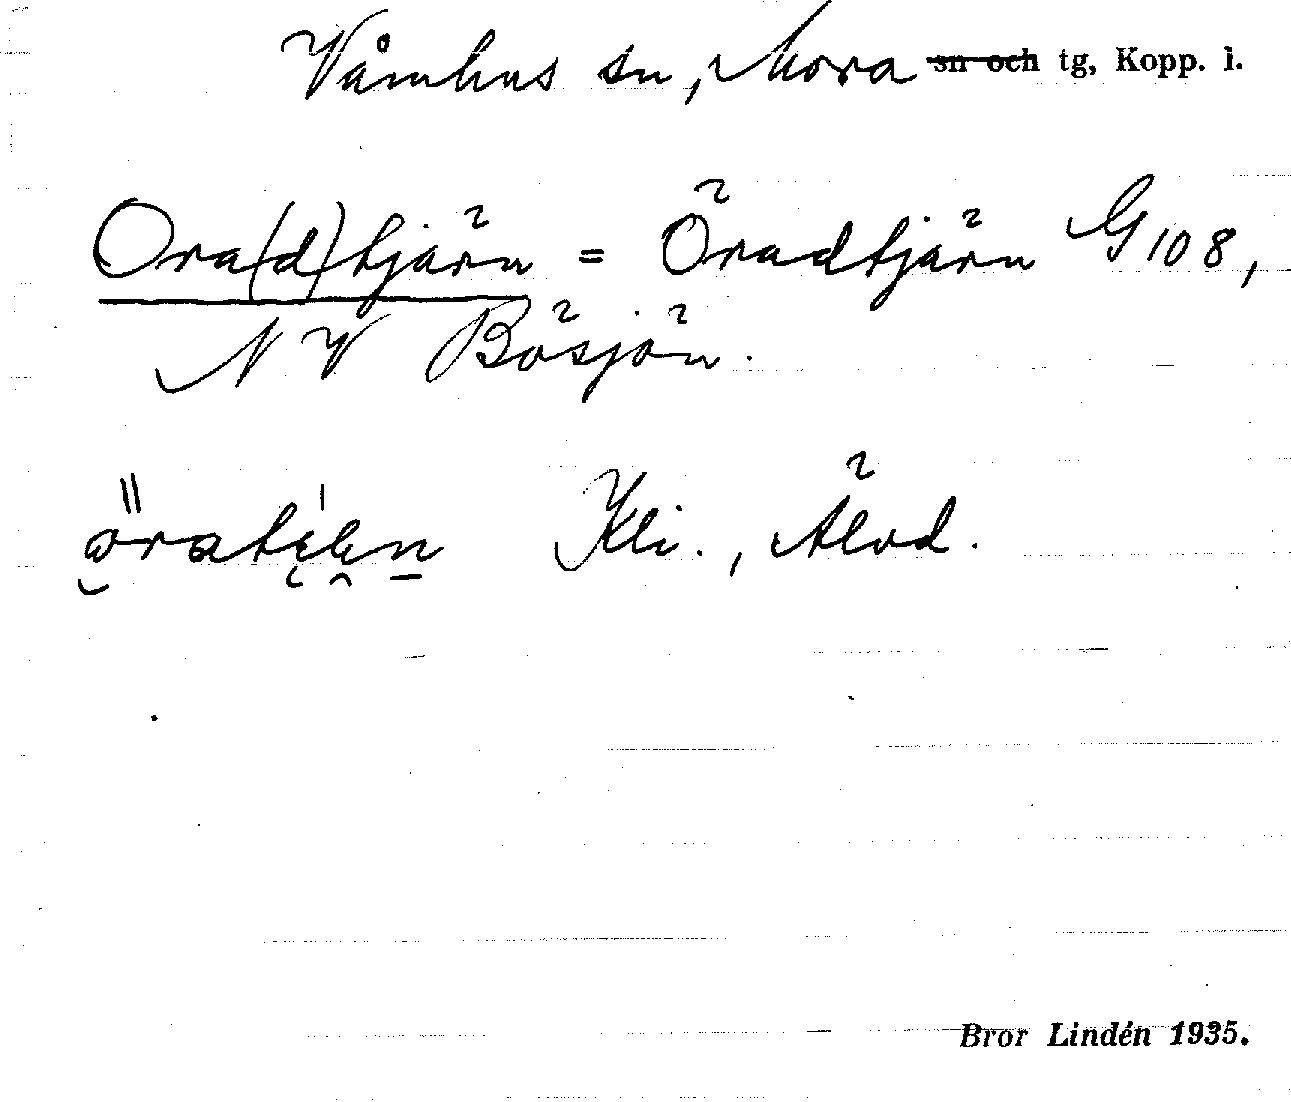 Våmhus sn, Mora sn och tg, Kopp. l.
Ora(d)tjärn = Öradtjärn G 108,
NV Bösjön.
Kli., Älvd.
Bror Lindén 1935.